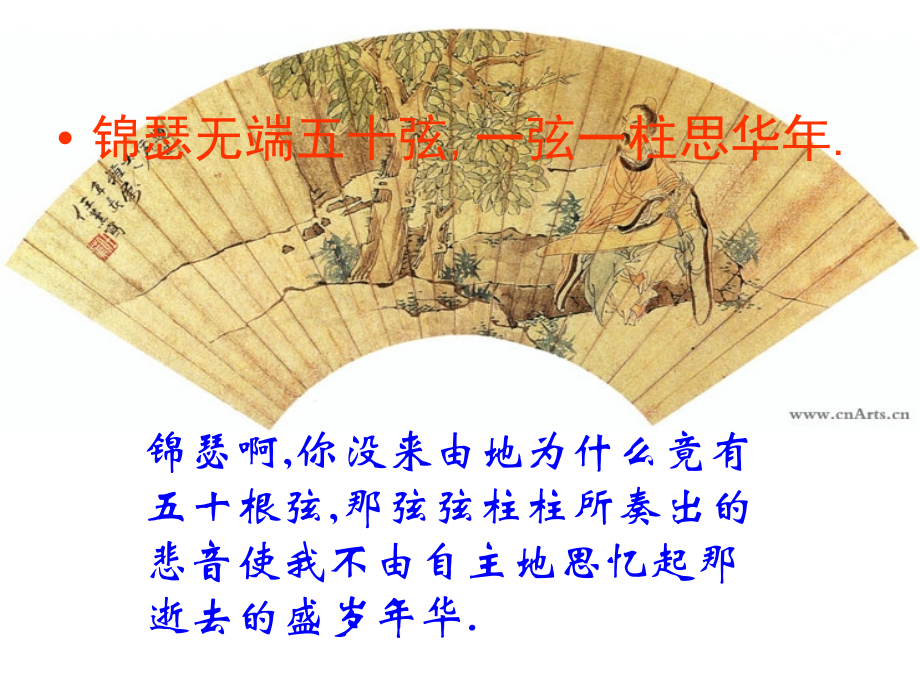 • 锦瑟无端五十弦,一弦一柱思华年.
www.cnArts.cn
锦瑟啊,你没来由地为什么竟有
五十根弦,那弦弦柱柱所奏出的
悲音使我不由自主地思忆起那
逝去的盛岁年华.